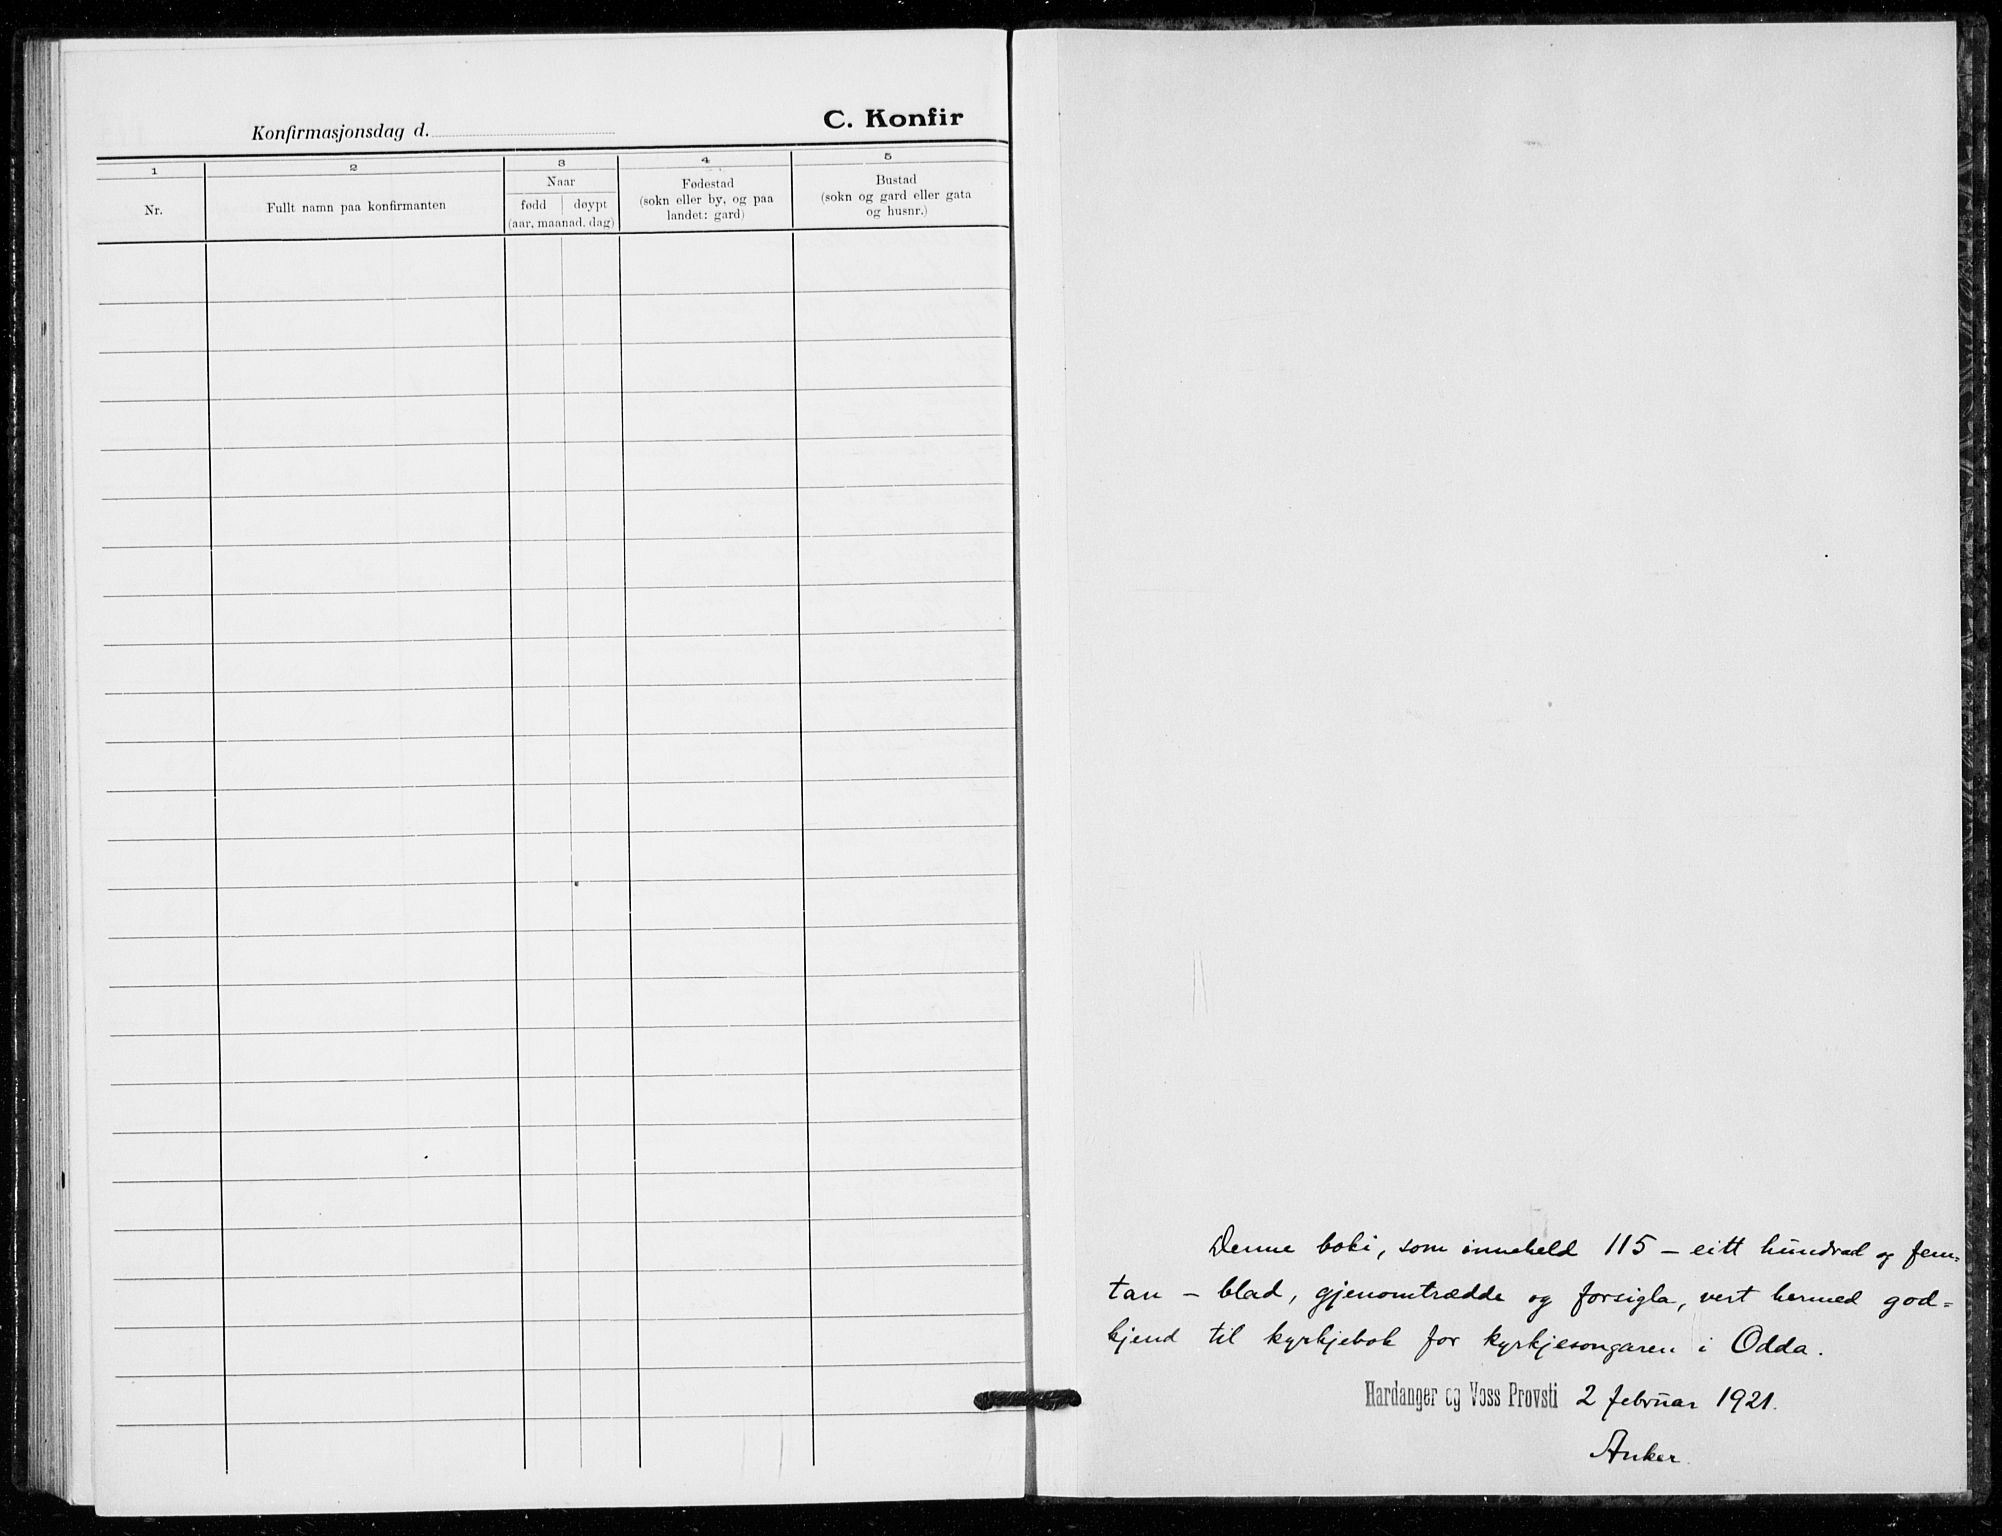 Konfirmasjonsdag d.
C. Konfir
1
2
3
4
5
Nr.
Fullt namn paa konfirmanten
Naar
fødd
døypt
(aar, maanad, dag)
Fødestad
(sokn eller by, og paa
landet: gard)
Bustad
(sokn og gard eller gata
og husnr.)
Denne boki, som inneheld 115 – eitt hundrad og fem-
tan – blad, gjenomtrædde og forsigla, vert hermed god-
kjend til kyrkjebok for kyrkjesongaren i Odda.
Hardanger og Voss Provsti 2 februar 1921.
Anker.